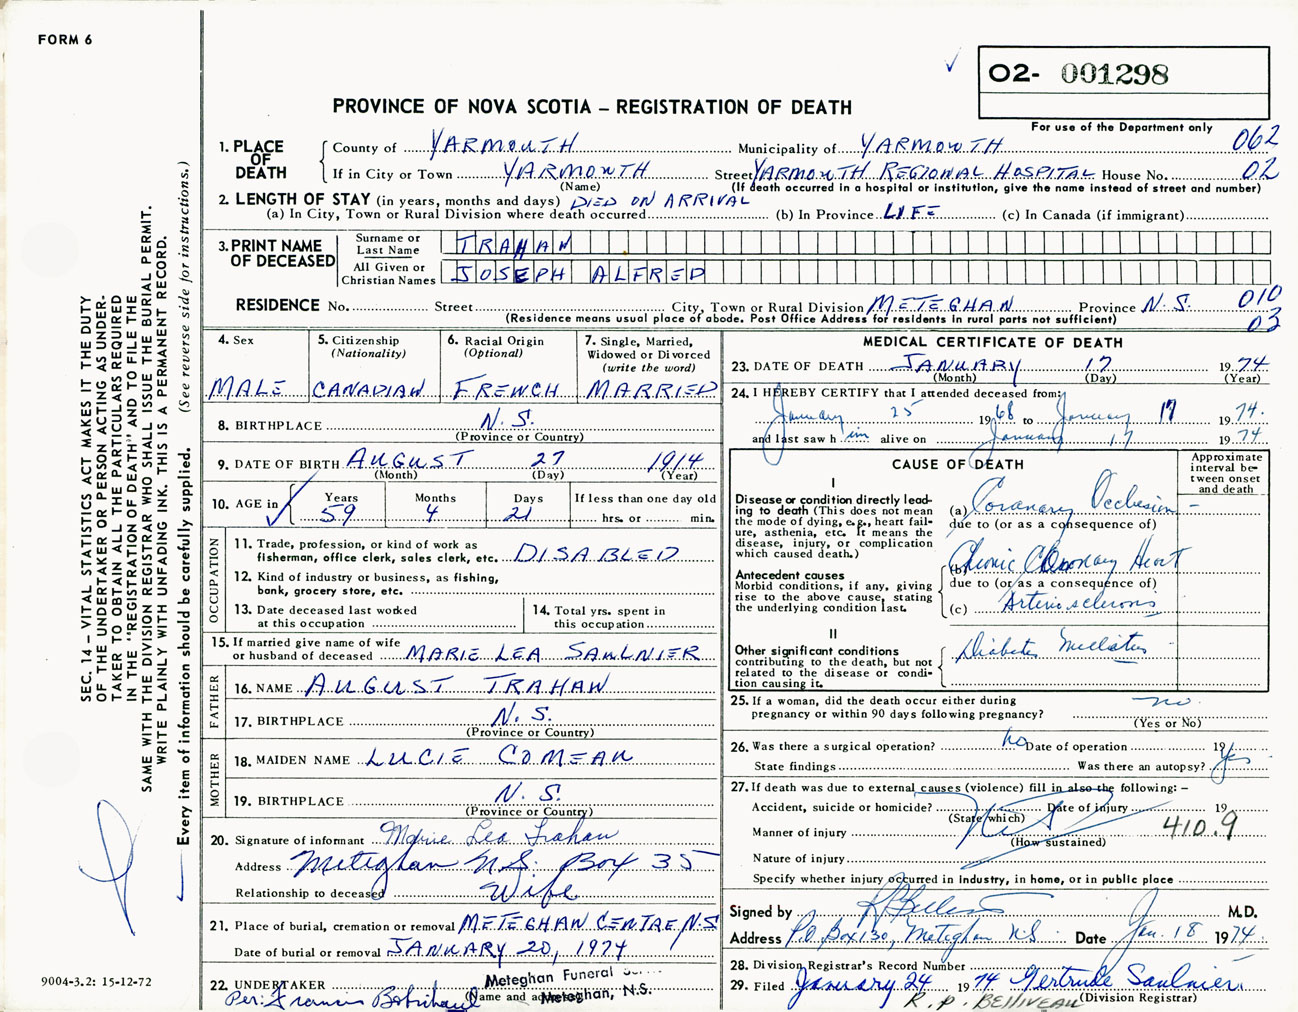 FORM 6
02- 001298
PROVINCE OF NOVA SCOTIA – REGISTRATION OF DEATH
For use of the Department only
1. PLACE OF DEATH
County of YARMOUTH Municipality of YARMOUTH 062
If in City or Town YARMOUTH Street YARMOUTH REGIONAL HOSPITAL House No. 02
(Name) (If death occurred in a hospital or institution, give the name instead of street and number)
2. LENGTH OF STAY (in years, months and days) DIED ON ARRIVAL
(a) In City, Town or Rural Division where death occurred (b) In Province LIFE (c) In Canada (if immigrant)
3. PRINT NAME OF DECEASED
Surname or Last Name TRAHAN
All Given or Christian Names JOSEPH ALFRED
RESIDENCE No. Street City, Town or Rural Division METEGHAN Province N.S. 010
(Residence means usual place of abode. Post Office Address for residents in rural parts not sufficient) 03
4. Sex
MALE
5. Citizenship
(Nationality)
CANADIAN
6. Racial Origin
(Optional)
FRENCH
7. Single, Married,
Widowed or Divorced
(write the word)
MARRIED
8. BIRTHPLACE N.S.
(Province or Country)
9. DATE OF BIRTH AUGUST 27 1914
(Month) (Day) (Year)
10. AGE in Years 59 Months 4 Days 21 If less than one day old
hrs. or min.
OCCUPATION
11. Trade, profession, or kind of work as
fisherman, office clerk, sales clerk, etc. DISABLED
12. Kind of industry or business, as fishing,
bank, grocery store, etc.
13. Date deceased last worked
at this occupation
14. Total yrs. spent in
this occupation
15. If married give name of wife
or husband of deceased MARIE LEA SAULNIER
FATHER
16. NAME AUGUST TRAHAN
17. BIRTHPLACE N.S.
(Province or Country)
MOTHER
18. MAIDEN NAME LUCIE COMEAU
19. BIRTHPLACE N.S.
(Province or Country)
20. Signature of informant Marie Lea Trahan
Address Meteghan N.S. Box 35
Relationship to deceased Wife
21. Place of burial, cremation or removal METEGHAN CENTRE N.S
Date of burial or removal JANUARY 20, 1974
22. UNDERTAKER Meteghan Funeral
(Name and address) Meteghan, N.S.
Per: Francis
MEDICAL CERTIFICATE OF DEATH
23. DATE OF DEATH JANUARY 17 1974
(Month) (Day) (Year)
24. I HEREBY CERTIFY that I attended deceased from:
January 25 1968 to January 17 1974.
and last saw him alive on January 17 1974
CAUSE OF DEATH
Approximate interval between onset and death
I
Disease or condition directly lead-
ing to death (This does not mean
the mode of dying, e.g., heart fail-
ure, asthenia, etc. It means the
disease, injury, or complication
which caused death.)
(a) Coronary Occlusion –
due to (or as a consequence of)
Antecedent causes
Morbid conditions, if any, giving
rise to the above cause, stating
the underlying condition last.
(b) Chronic Coronary Heart
due to (or as a consequence of)
(c) Arteriosclerosis
II
Other significant conditions
contributing to the death, but not
related to the disease or condi-
tion causing it.
Diabetes Mellitus
25. If a woman, did the death occur either during
pregnancy or within 90 days following pregnancy? no
(Yes or No)
26. Was there a surgical operation? no Date of operation 19
State findings Was there an autopsy? yes
27. If death was due to external causes (violence) fill in also the following: –
Accident, suicide or homicide? Date of injury 19
(State which)
Manner of injury 410.9
(How sustained)
Nature of injury
Specify whether injury occurred in industry, in home, or in public place
Signed by M.D.
Address P.O. Box 130, Meteghan N.S. Date Jan. 18 1974
28. Division Registrar's Record Number
29. Filed January 24 1974 Gertrude Saulnier
R. P. BELLIVEAU (Division Registrar)
SEC. 14 – VITAL STATISTICS ACT MAKES IT THE DUTY
OF THE UNDERTAKER OR PERSON ACTING AS UNDER-
TAKER TO OBTAIN ALL THE PARTICULARS REQUIRED
IN THE "REGISTRATION OF DEATH" AND TO FILE THE
SAME WITH THE DIVISION REGISTRAR WHO SHALL ISSUE THE BURIAL PERMIT.
WRITE PLAINLY WITH UNFADING INK. THIS IS A PERMANENT RECORD.
Every item of information should be carefully supplied. (See reverse side for instructions.)
9004-3.2: 15-12-72